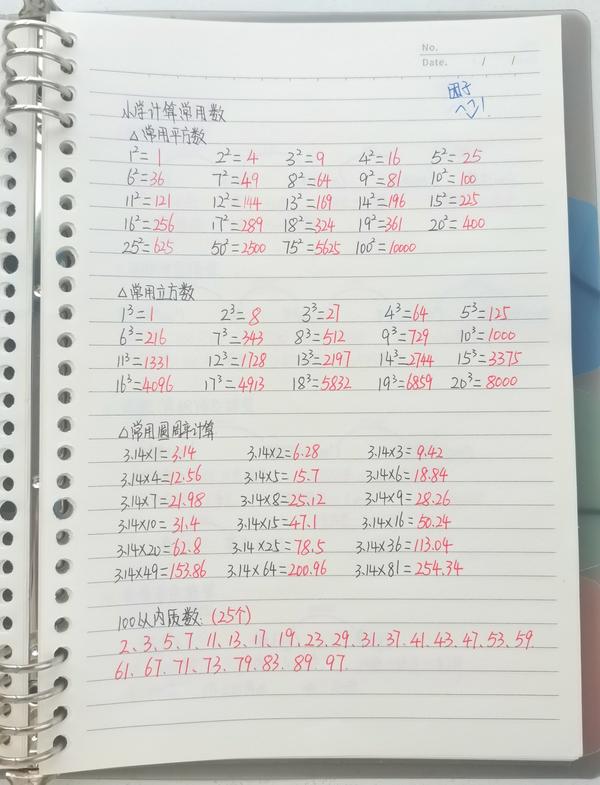 No.
Date. / /
团子
小学计算常用数
△常用平方数
1²=1 2²=4 3²=9 4²=16 5²=25
6²=36 7²=49 8²=64 9²=81 10²=100
11²=121 12²=144 13²=169 14²=196 15²=225
16²=256 17²=289 18²=324 19²=361 20²=400
25²=625 50²=2500 75²=5625 100²=10000
△常用立方数
1³=1 2³=8 3³=27 4³=64 5³=125
6³=216 7³=343 8³=512 9³=729 10³=1000
11³=1331 12³=1728 13³=2197 14³=2744 15³=3375
16³=4096 17³=4913 18³=5832 19³=6859 20³=8000
△常用圆周率计算
3.14×1=3.14 3.14×2=6.28 3.14×3=9.42
3.14×4=12.56 3.14×5=15.7 3.14×6=18.84
3.14×7=21.98 3.14×8=25.12 3.14×9=28.26
3.14×10=31.4 3.14×15=47.1 3.14×16=50.24
3.14×20=62.8 3.14×25=78.5 3.14×36=113.04
3.14×49=153.86 3.14×64=200.96 3.14×81=254.34
100以内质数:(25个)
2、3、5、7、11、13、17、19、23、29、31、37、41、43、47、53、59、
61、67、71、73、79、83、89、97.